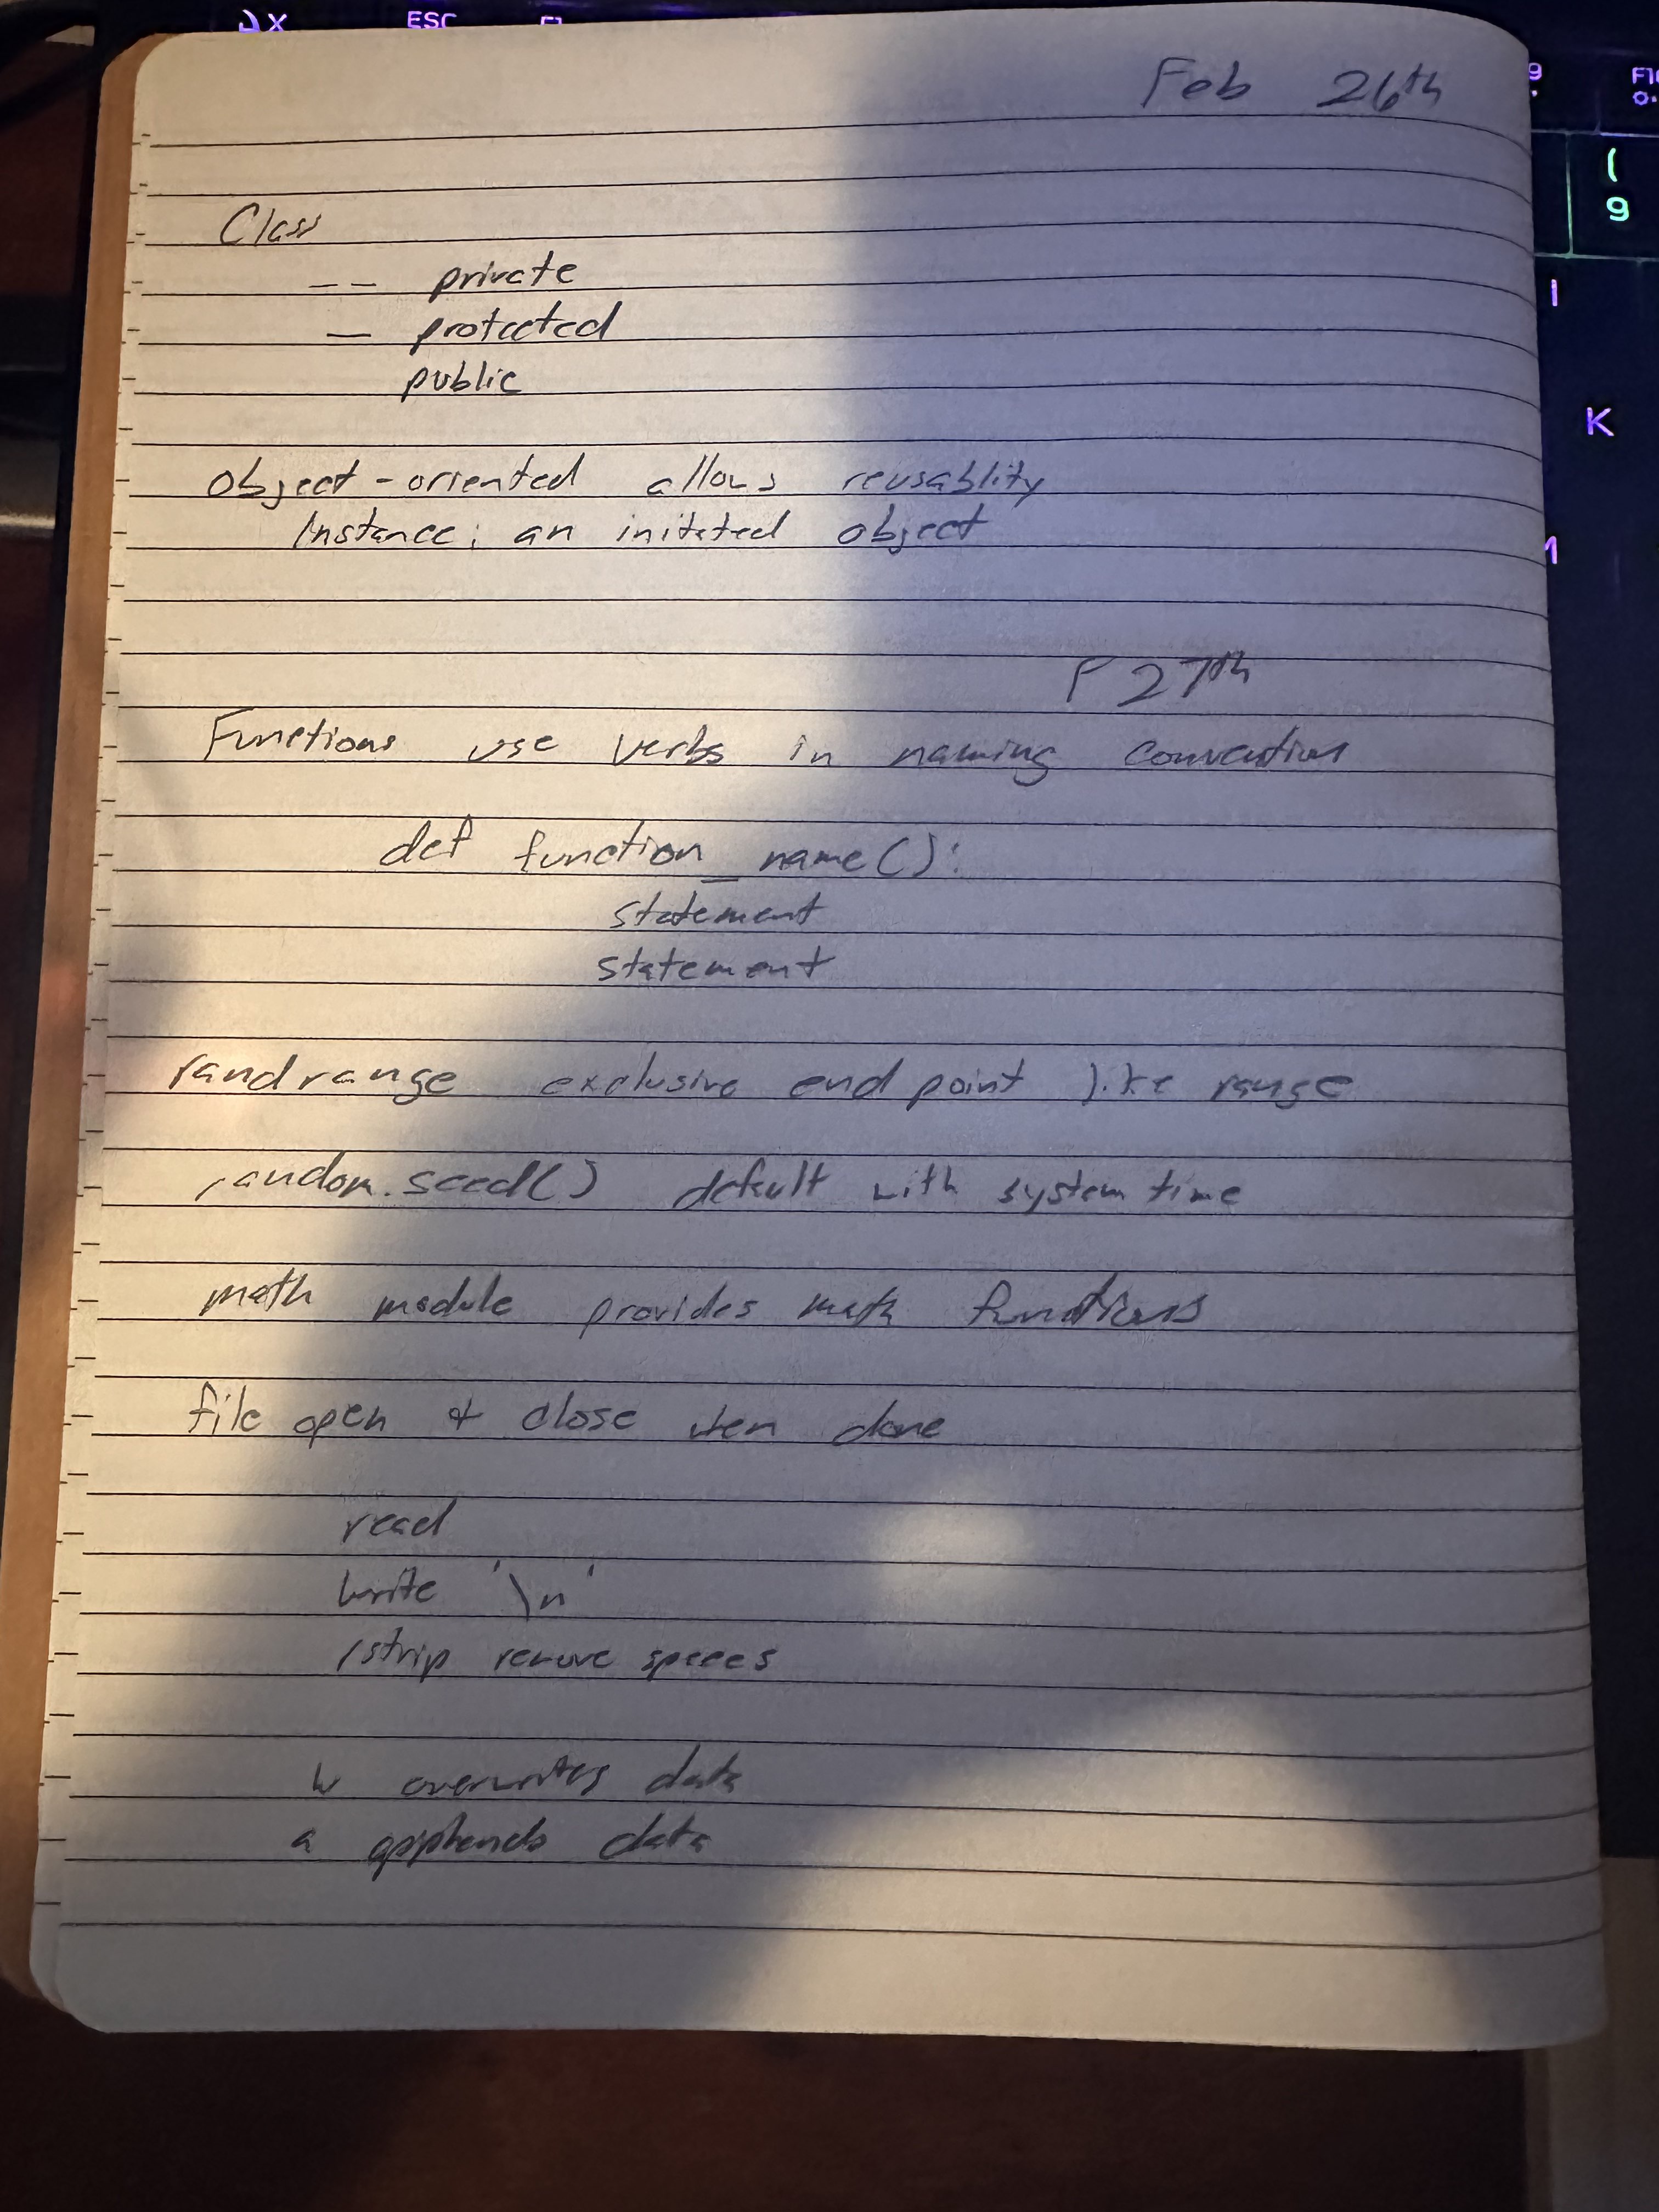 ESC
F1
9
F10
(
9
I
K
M
Feb 26th
Class
-- private
— protected
public
object-oriented allows reusablity
Instance: an initated object
F 27th
Functions use verbs in naming convention
def function_name():
statement
statement
randrange exclusive endpoint like range
random.seed() default with system time
math module provides math functions
file open & close wen done
read
write '\n'
rstrip remove spaces
w overwrites data
a apphends data